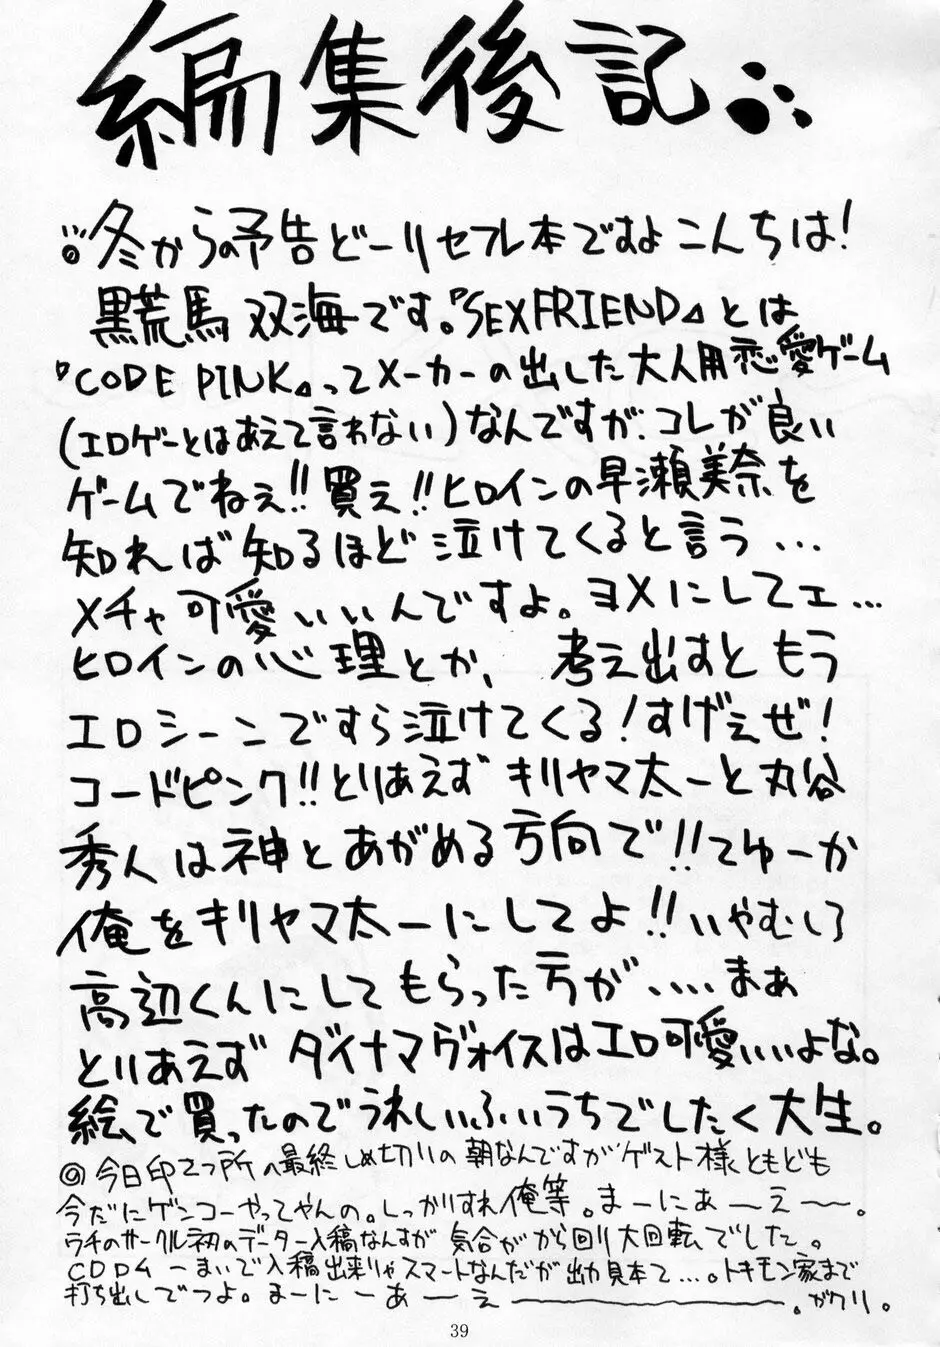 編集後記
冬からの予告どーりセフレ本ですよこんちは!
黒荒馬双海です。『SEXFRIEND』とは
『CODE PINK』ってメーカーの出した大人用恋愛ゲーム
(エロゲーとはあえて言わない)なんですが、コレが良い
ゲームでねぇ!!買え!!ヒロインの早瀬美奈を
知れば知るほど泣けてくると言う…
メチャ可愛いいんですよ。ヨメにしてェ…
ヒロインの心理とか、考え出すともう
エロシーンですら泣けてくる!すげぇぜ!
コードピンク!!とりあえずキリヤマ太一と丸谷
秀人は神とあがめる方向で!!てゆーか
俺をキリヤマ太一にしてよ!!いやむしろ
高辺くんにしてもらった方が、…まぁ
とりあえずダイナマヴォイスはエロ可愛いいよな。
絵で買ったのでうれしいふいうちでしたく大生。
◎今日印さつ所の最終しめ切りの朝なんですがゲスト様ともども
今だにゲンコーやってやんの。しっかりすれ俺等。まーにぁーえ〜〜。
ウチのサークル初のデーター入稿なんすが気合がから回り大回転でした。
CD一まいで入稿出来りゃスマートなんだが出力見本て…。トキモン家まで
打ち出しでつよ。まーにーあーえ――。ガクリ。
39